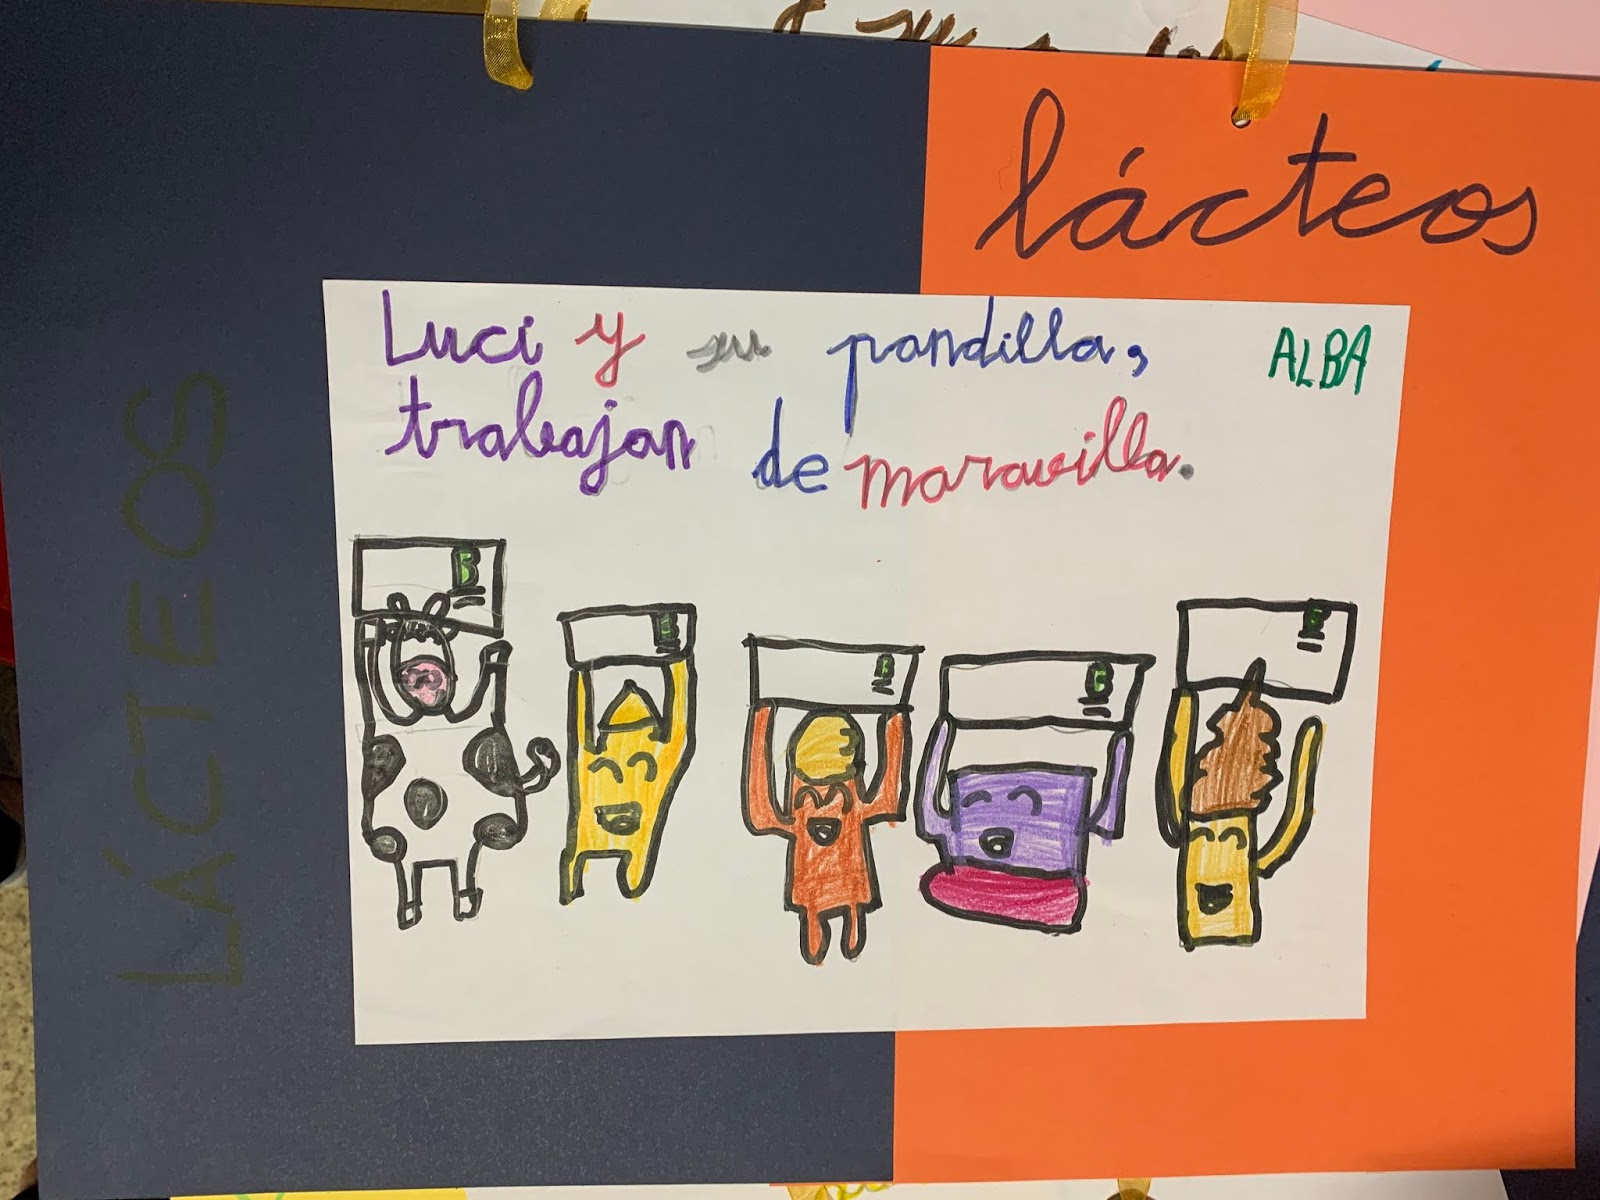 lácteos
LÁCTEOS
Luci y su pandilla,
ALBA
trabajan de maravilla.
B